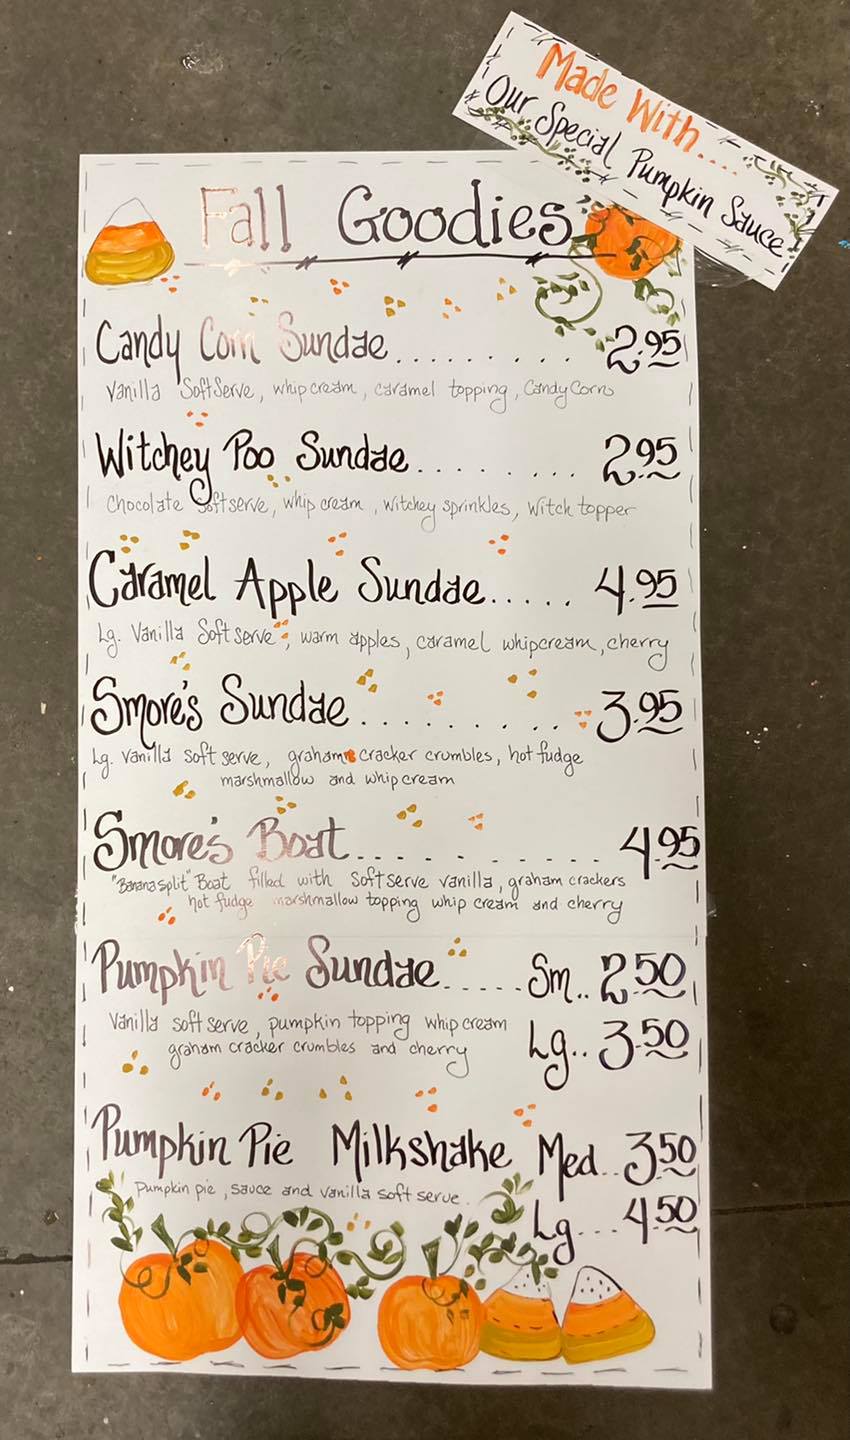 Made With....
Our Special Pumpkin Sauce
Fall Goodies
Candy Corn Sundae......... 2.95
Vanilla Soft Serve, whip cream, caramel topping, Candy Corn
Witchey Poo Sundae........ 2.95
Chocolate softserve, whip cream, witchey sprinkles, witch topper
Caramel Apple Sundae..... 4.95
Lg. Vanilla Soft serve, warm apples, caramel whipcream, cherry
Smore's Sundae.......... 3.95
Lg. vanilla soft serve, graham cracker crumbles, hot fudge
marshmallow and whip cream
Smore's Boat............ 4.95
"Banana split" Boat filled with Soft serve vanilla, graham crackers
hot fudge marshmallow topping whip cream and cherry
Pumpkin Pie Sundae..... Sm.. 2.50
Vanilla soft serve, pumpkin topping whip cream
graham cracker crumbles and cherry Lg.. 3.50
Pumpkin Pie Milkshake Med.. 3.50
Pumpkin pie, sauce and vanilla soft serve.
Lg... 4.50